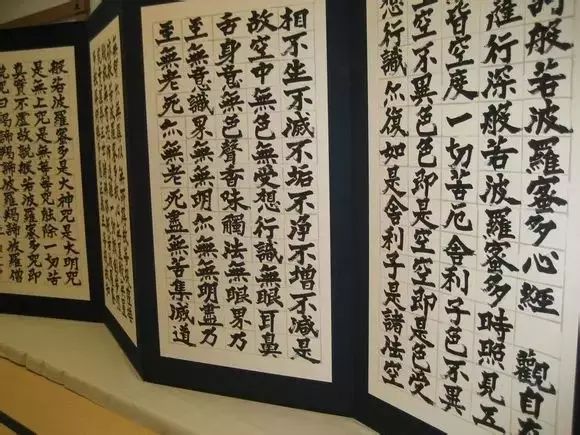 訶般若波羅蜜多心經 觀自在
薩行深般若波羅蜜多時照見五
皆空度一切苦厄舍利子色不異
空不異色色即是空空即是色受
想行識亦復如是舍利子是諸法空
相不生不滅不垢不淨不增不減是
故空中無色無受想行識無眼耳鼻
舌身意無色聲香味觸法無眼界乃
至無意識界無無明亦無無明盡乃
至無老死亦無老死盡無苦集滅道
般若波羅蜜多是大神咒是大明咒
是無上咒是無等等咒能除一切苦
真實不虛故說般若波羅蜜多咒即
說咒曰羯諦羯諦波羅羯諦波羅僧